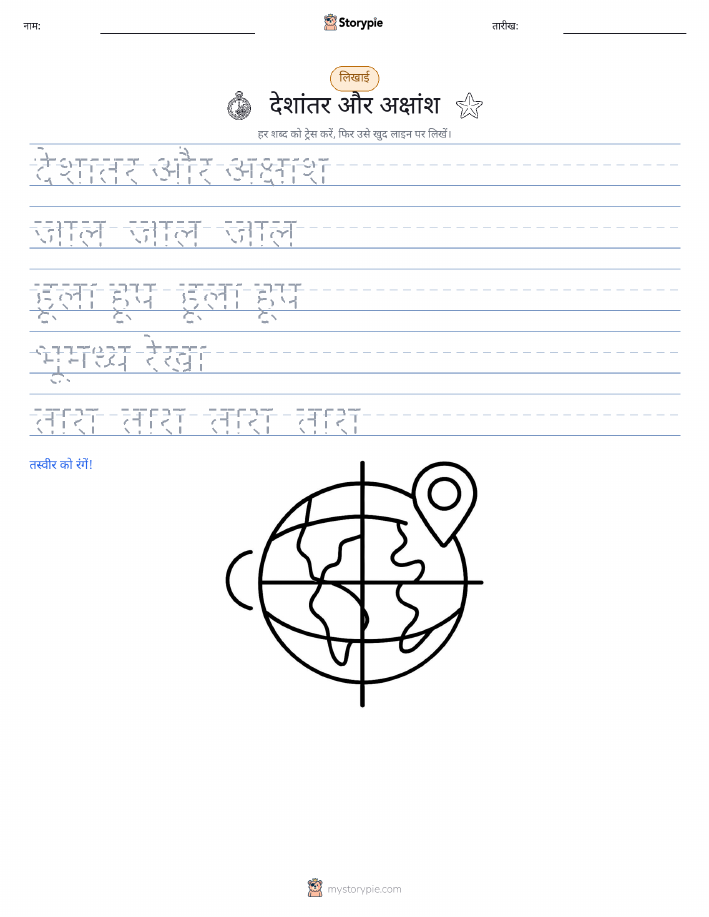 नाम:
Storypie
तारीख:
लिखाई
देशांतर और अक्षांश
हर शब्द को ट्रेस करें, फिर उसे खुद लाइन पर लिखें।
देशांतर और अक्षांश
जाल जाल जाल
हूला हूप हूला हूप
भूमध्य रेखा
तारा तारा तारा तारा
तस्वीर को रंगें!
mystorypie.com